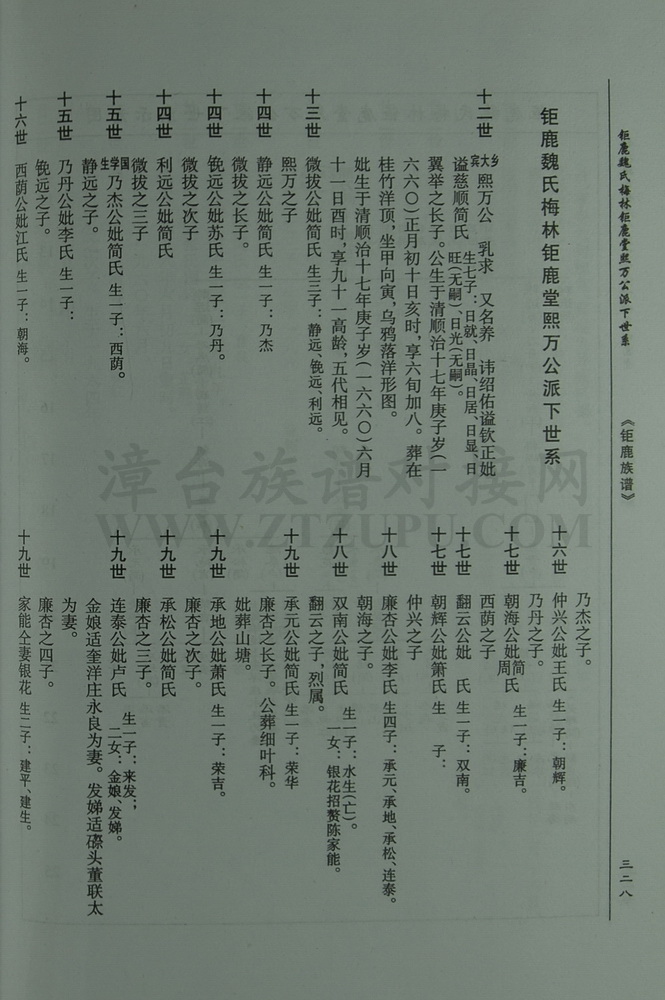 钜鹿魏氏梅林钜鹿堂熙万公派下世系
《钜鹿族谱》
三二八
钜鹿魏氏梅林钜鹿堂熙万公派下世系
十二世 乡大宾 熙万公 乳求 又名养 讳绍佑谥钦正妣
谥慈顺简氏 生七子：日就、日晶、日居、日显、日旺(无嗣)、日光(无嗣)。
翼举之长子。公生于清顺治十七年庚子岁(一
六六〇)正月初十日亥时,享六旬加八。葬在
桂竹洋顶,坐甲向寅,乌鸦落洋形图。
妣生于清顺治十七年庚子岁(一六六〇)六月
十一日酉时,享九十一高龄,五代相见。
十三世 微拔公妣简氏 生三子：静远、锐远、利远。
熙万之子
十四世 静远公妣简氏 生一子：乃杰
微拔之长子。
十四世 锐远公妣苏氏 生一子：乃丹。
微拔之次子
十四世 利远公妣简氏
微拔之三子
十五世 国学生 乃杰公妣简氏 生一子：西荫。
静远之子。
十五世 乃丹公妣李氏 生一子：
锐远之子。
十六世 西荫公妣江氏 生一子：朝海。
乃杰之子。
十六世 仲兴公妣王氏 生一子：朝辉。
乃丹之子。
十七世 朝海公妣简周氏 生一子：廉吉。
西荫之子
十七世 翻云公妣 氏 生一子：双南。
十七世 朝辉公妣箫氏 生 子：
仲兴之子
十八世 廉杏公妣李氏 生四子：承元、承地、承松、连泰。
朝海之子。
十八世 双南公妣简氏 生一子：水生(亡)。一女：银花招赘陈家能。
翻云之子,烈属。
十九世 承元公妣简氏 生一子：荣华
廉杏之长子。公葬细叶科。
妣葬山塘。
十九世 承地公妣萧氏 生一子：荣吉。
廉杏之次子。
十九世 承松公妣简氏
廉杏之三子。
十九世 连泰公妣卢氏 生一子：来发；二女：金娘、发娣。
金娘适奎洋庄永良为妻。发娣适磜头董联太
为妻。
廉杏之四子。
十九世 家能仝妻银花 生二子：建平、建生。
漳台族谱对接网
WWW.ZTZUPU.COM